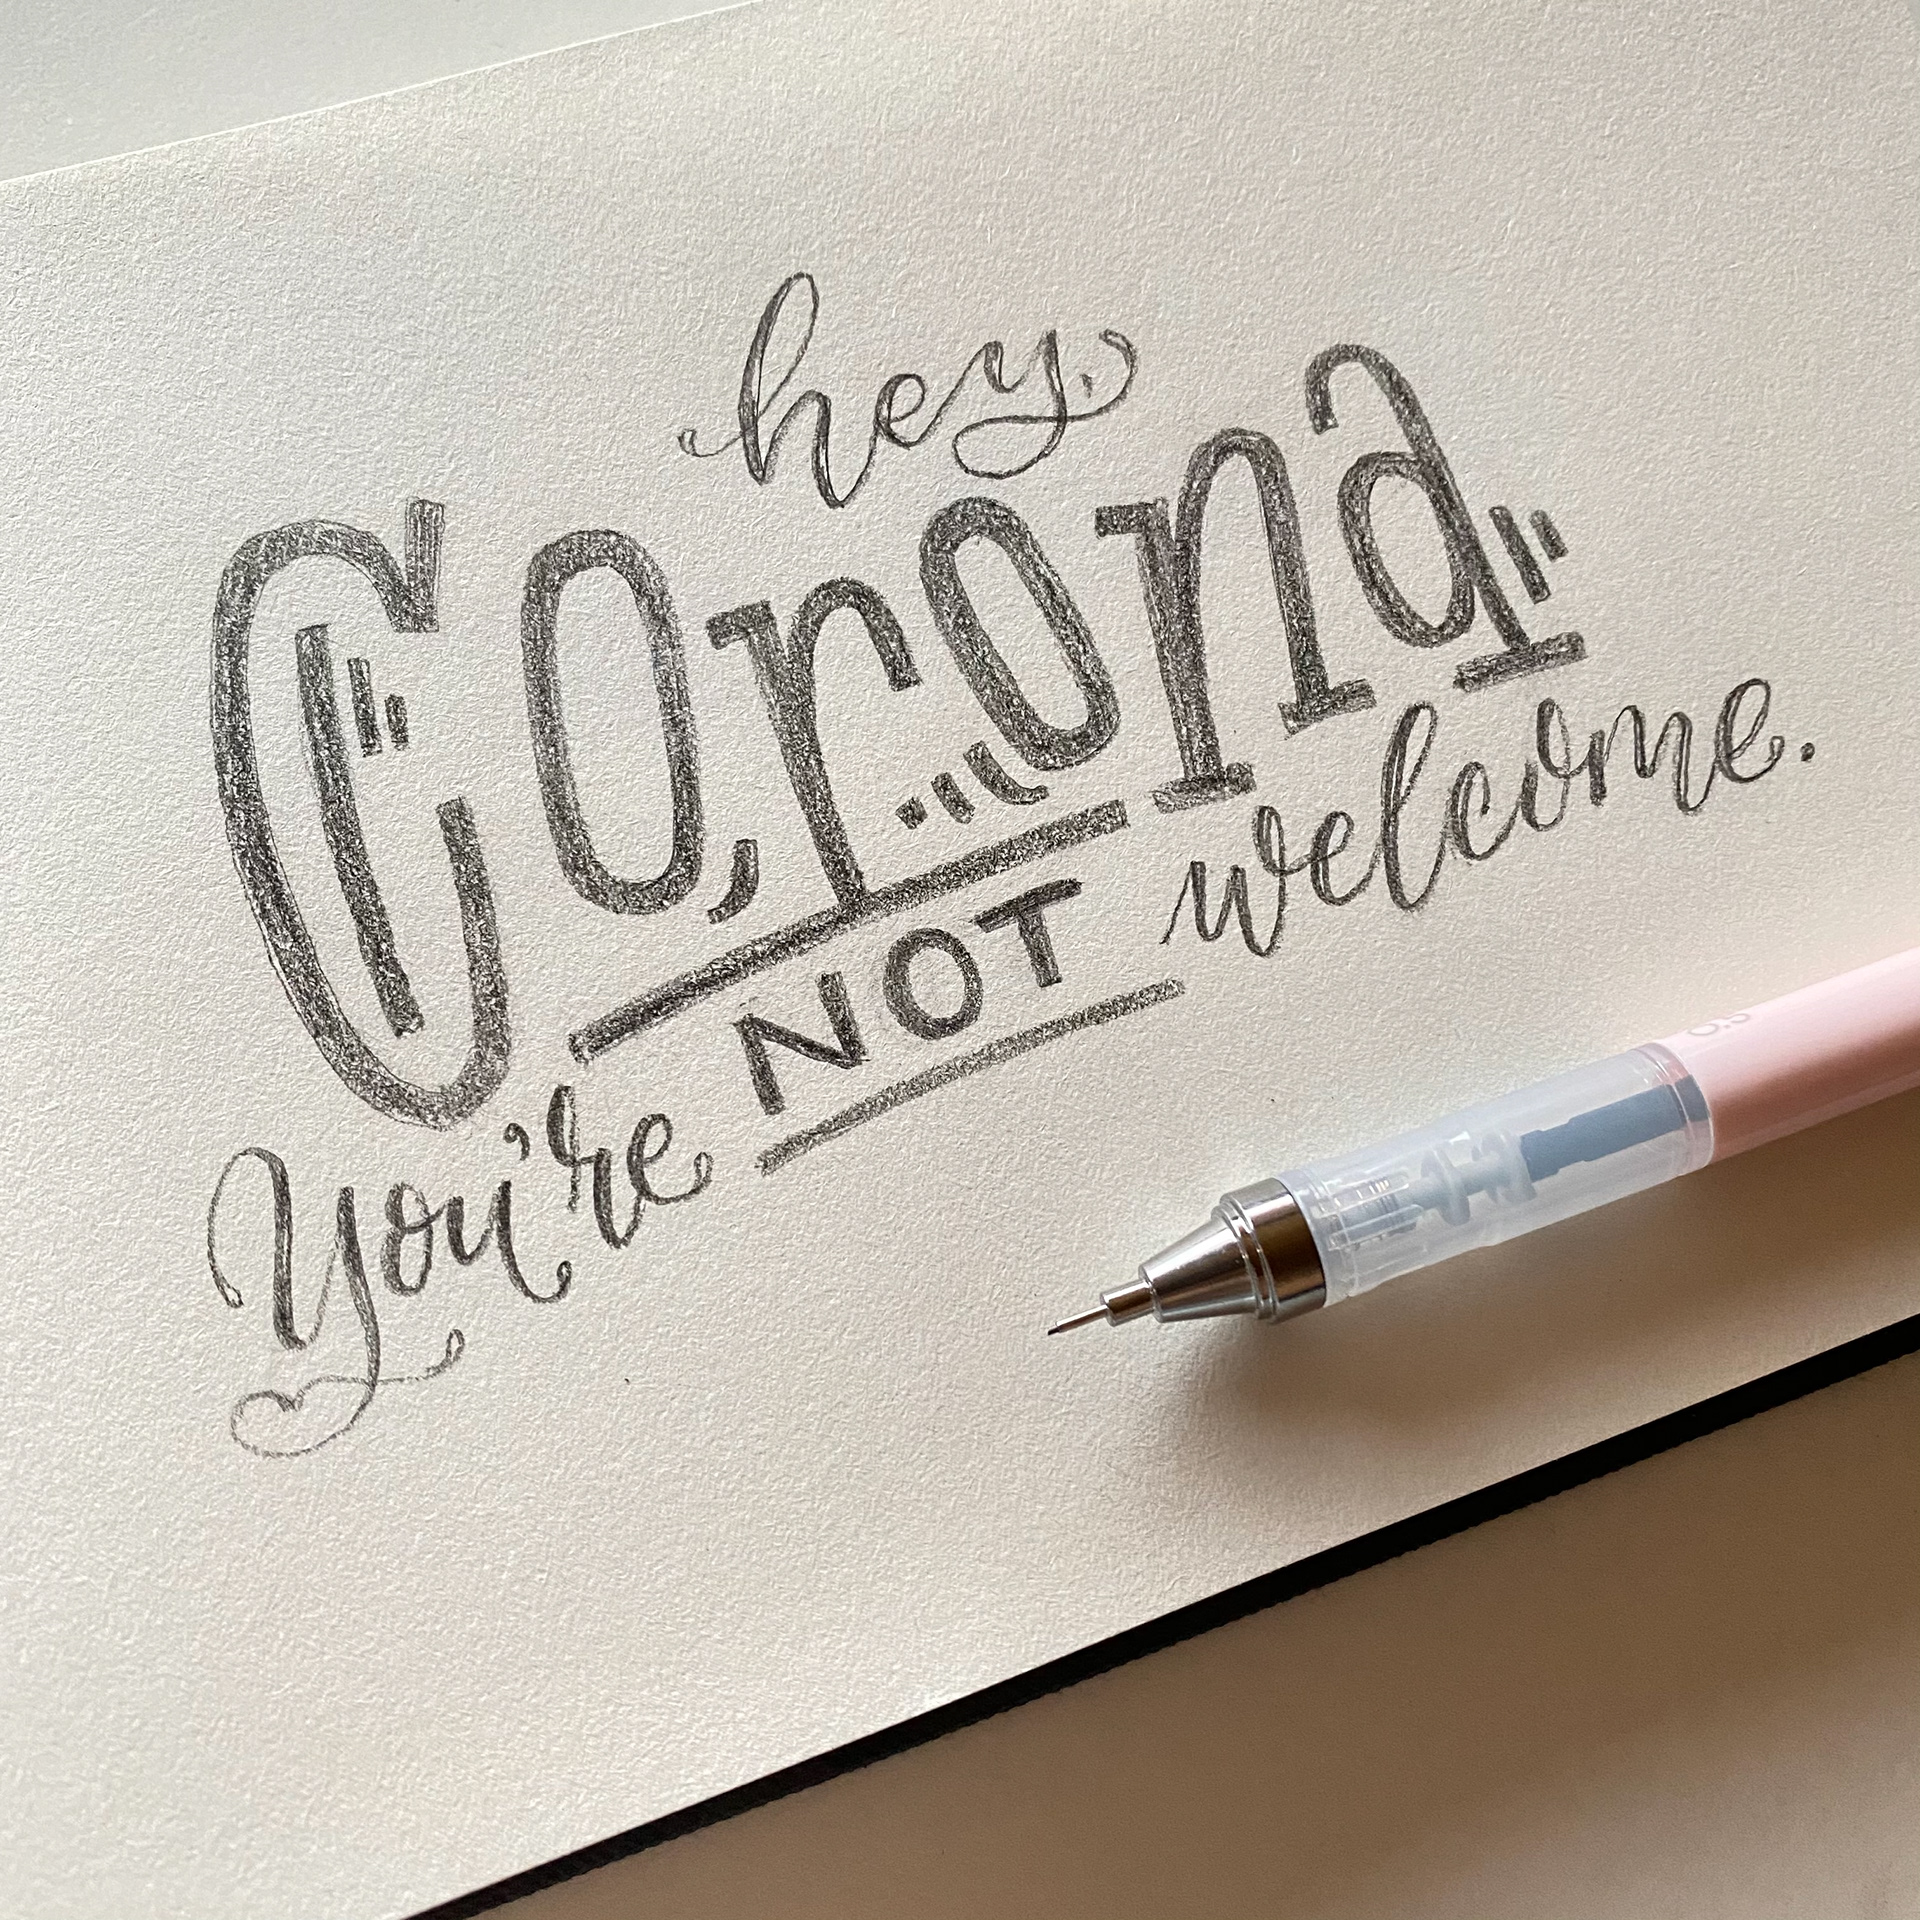 hey,
Corona
You're NOT welcome.
0.5